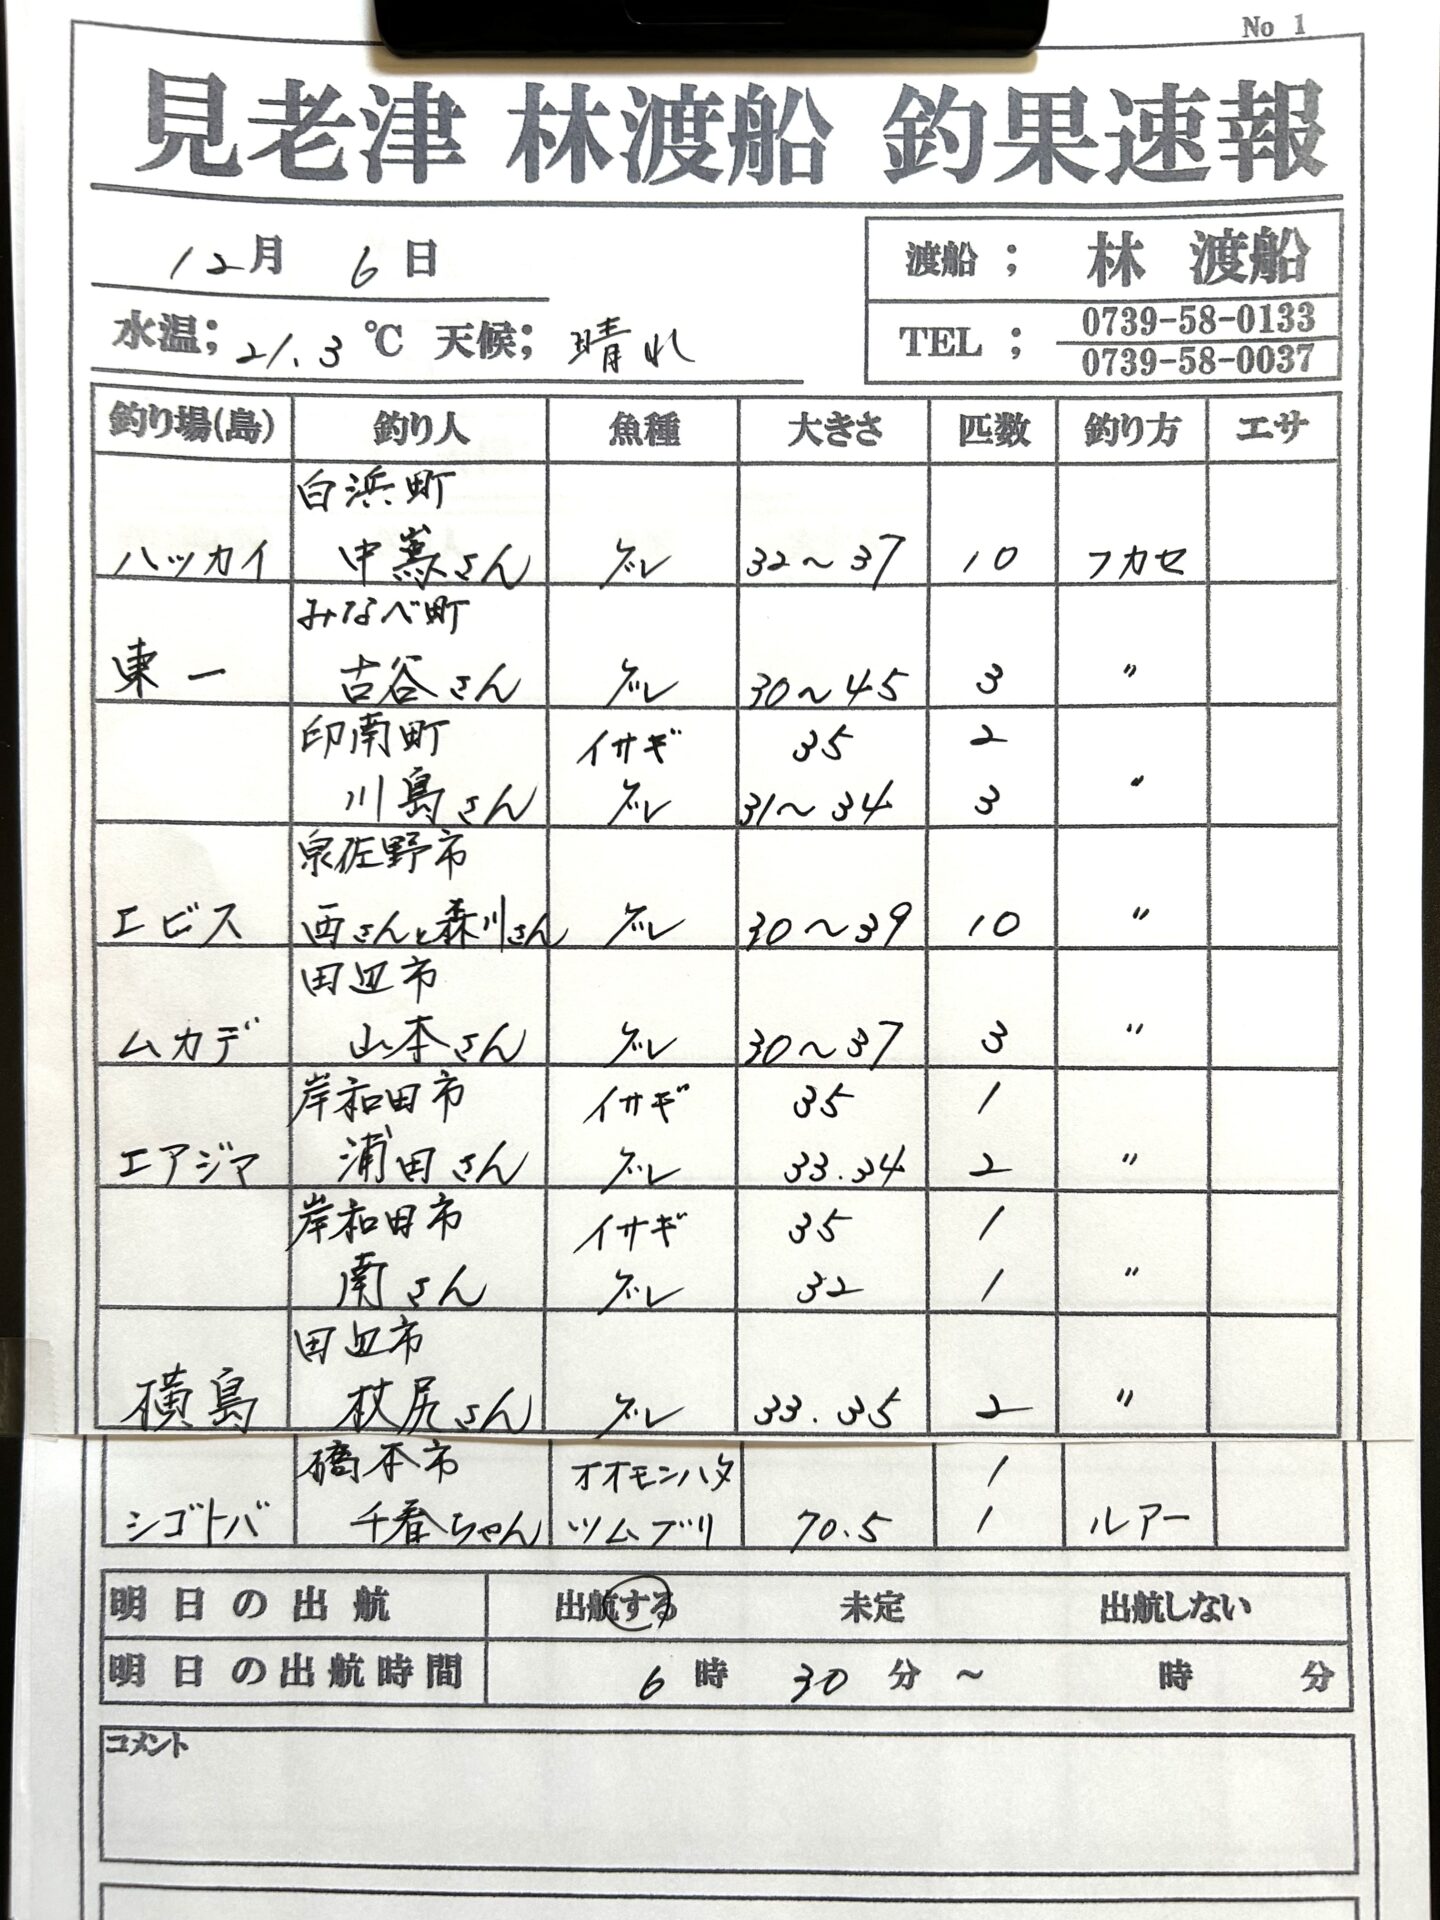 No 1
見老津 林渡船 釣果速報
12月 6日
渡船 ; 林 渡船
水温; 21.3 ℃ 天候; 晴れ
TEL ; 0739-58-0133
0739-58-0037
釣り場(島) 釣り人 魚種 大きさ 匹数 釣り方 エサ
白浜町
ハッカイ 中蔦さん グレ 32〜37 10 フカセ
みなべ町
東一 古谷さん グレ 30〜45 3 〃
印南町 イサギ 35 2
川島さん グレ 31〜34 3 〃
泉佐野市
エビス 西さんと森川さん グレ 30〜39 10 〃
田辺市
ムカデ 山本さん グレ 30〜37 3 〃
岸和田市 イサギ 35 1
エアジマ 浦田さん グレ 33.34 2 〃
岸和田市 イサギ 35 1
南さん グレ 32 1 〃
田辺市
横島 杖尻さん グレ 33.35 2 〃
橋本市 オオモンハタ 1
シゴトバ 千春ちゃん ツムブリ 70.5 1 ルアー
明日の出航 出航する 未定 出航しない
明日の出航時間 6 時 30 分 ~ 時 分
コメント